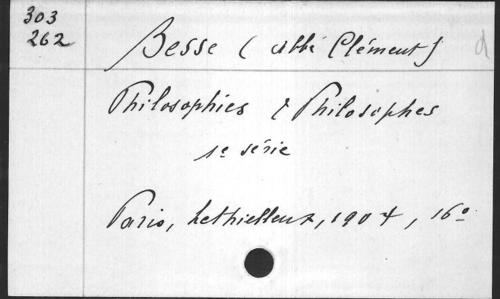 303
262
Besse (Abbé Clément)
d
Philosophies & Philosophes
1e série
Paris, Lethielleux, 1904, 16º